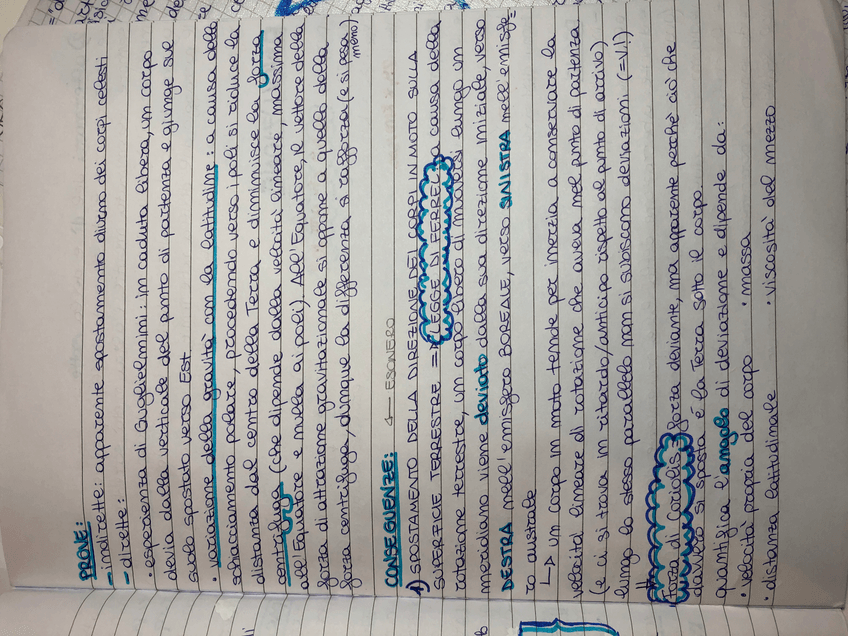 PROVE:
- indirette: apparente spostamento diurno dei corpi celesti
- dirette:
• esperienza di Guglielmini: in caduta libera, un corpo
devia dalla verticale del punto di partenza e giunge sul
suolo spostato verso Est
• variazione della gravità con la latitudine: a causa dello
schiacciamento polare, procedendo verso i poli si riduce la
distanza dal centro della Terra e diminuisce la forza
centrifuga (che dipende dalla velocità lineare, massima
all'Equatore e nulla ai poli). All'Equatore, il vettore della
forza di attrazione gravitazionale si oppone a quello della
forza centrifuga, dunque la differenza si rafforza (e si pesa
meno)
CONSEGUENZE: ← ESONERO
1) SPOSTAMENTO DELLA DIREZIONE DEI CORPI IN MOTO SULLA
SUPERFICIE TERRESTRE => (LEGGE DI FERREL): a causa della
rotazione terrestre, un corpo libero di muoversi lungo un
meridiano viene deviato dalla sua direzione iniziale, verso
DESTRA nell'emisfero BOREALE, verso SINISTRA nell'emisfe=
ro australe
↳ un corpo in moto tende per inerzia a conservare la
velocità lineare di rotazione che aveva nel punto di partenza
(e ci si trova in ritardo/anticipo rispetto al punto di arrivo)
lungo lo stesso parallelo non si subiscono deviazioni (=V!)
Forza di Coriolis: forza deviante, ma apparente perché ciò che
davvero si sposta è la Terra sotto il corpo.
quantifica l'angolo di deviazione e dipende da:
• velocità propria del corpo • massa
• distanza latitudinale • viscosità del mezzo